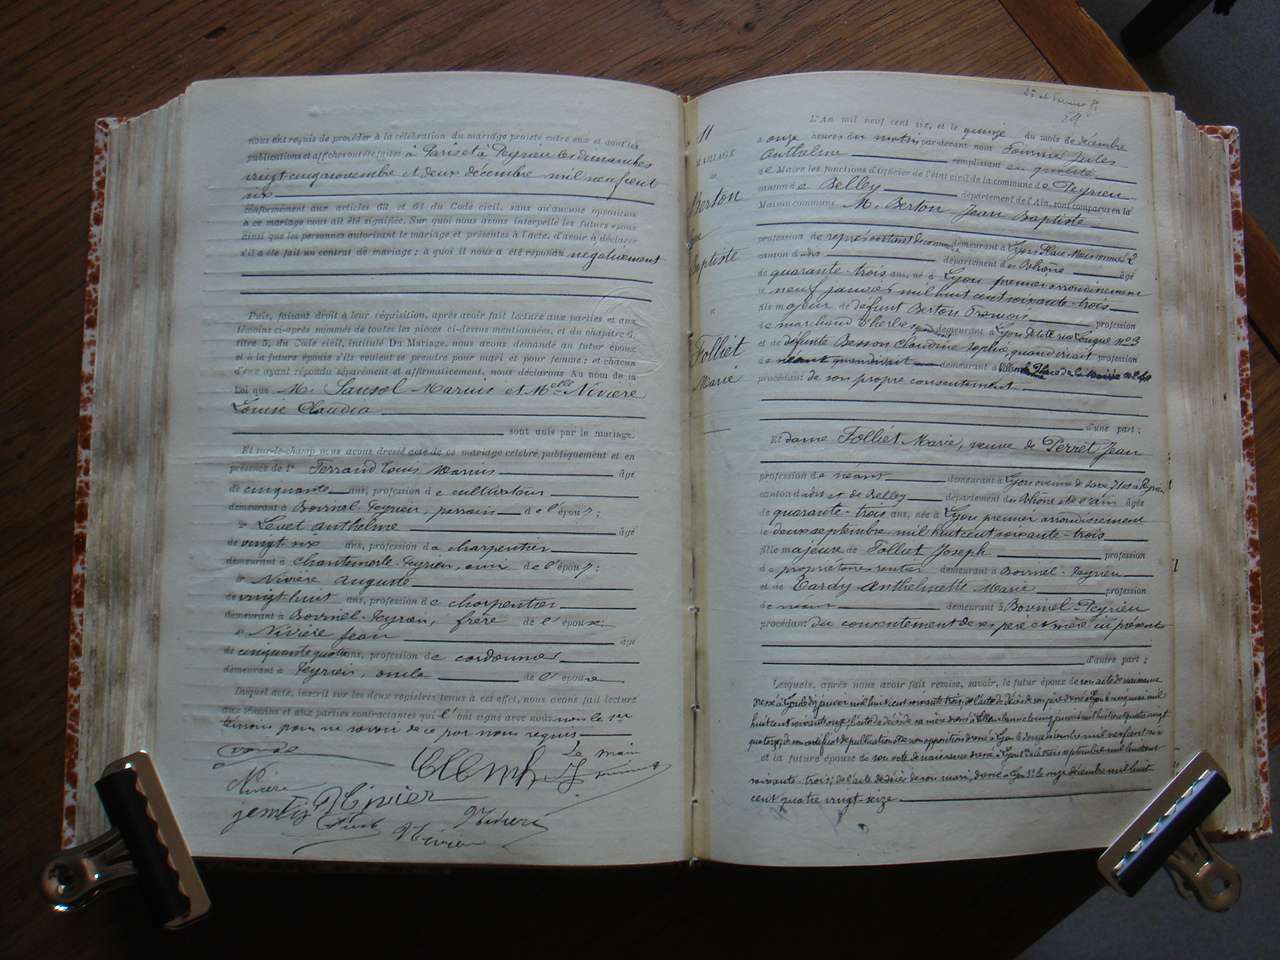 nous ont requis de procéder à la célébration du mariage projeté entre eux et dont les
publications et affiches ont été faites à Paris et à Peyrieu les dimanches
vingt cinq novembre et deux décembre mil neuf cent
six
conformément aux articles 63 et 64 du Code civil, sans qu'aucune opposition
à ce mariage nous ait été signifiée. Sur quoi nous avons interpellé les futurs époux
ainsi que les personnes autorisant le mariage et présentes à l'acte, d'avoir à déclarer
s'il a été fait un contrat de mariage ; à quoi il nous a été répondu négativement
Puis, faisant droit à leur réquisition, après avoir fait lecture aux parties et aux
témoins ci-après nommés de toutes les pièces ci-devant mentionnées, et du chapitre 6,
titre 5, du Code civil, intitulé Du Mariage, nous avons demandé au futur époux
et à la future épouse s'ils veulent se prendre pour mari et pour femme ; et chacun
d'eux ayant répondu séparément et affirmativement, nous déclarons Au nom de la
Loi que M. Sausol Marius et Melle Nivière
Louise Claudia
sont unis par le mariage.
Et sur-le-champ nous avons dressé acte de ce mariage célébré publiquement et en
présence de 1° Ferrand Louis Marius âgé
de cinquante ans, profession de cultivateur
demeurant à Bovinel-Peyrieu, parrain de l'épou
Levet Anthelme âgé
de vingt six ans, profession de charpentier
demeurant à Chantemerle-Peyrieu, ami de l'épou
Nivière Auguste
de vingt huit ans, profession de charpentier
demeurant à Bovinel-Peyrieu, frère de l'épouse
Nivière Jean âgé
de cinquante quatre ans, profession de cordonnier
demeurant à Peyrieu, oncle de l'épouse
Duquel acte, inscrit sur les deux registres tenus à cet effet, nous avons fait lecture
aux témoins et aux parties contractantes qui l'ont signé avec nous non le 1er
témoin pour ne savoir de ce par nous requis
Nivière
Nivière
Nivière
25 et
29
11
MARIAGE
Berton
Jean
Baptiste
Folliet
Marie
L'An mil neuf cent six, et le quinze du mois de décembre
à onze heures du matin par-devant nous Fournier Jules
Anthelme remplissant en qualité
de Maire les fonctions d'Officier de l'état civil de la commune de Peyrieu
canton de Belley département de l'Ain, sont comparus en la
Maison commune M. Berton Jean Baptiste
profession de représentant de commerce demeurant à Lyon Place Meissonnier 2
canton du dit département du Rhône âgé
de quarante-trois ans, né à Lyon premier arrondissement
le neuf janvier mil huit cent soixante-trois
fils majeur de défunt Berton François profession
de marchand demeurant à Lyon n° 3
et de défunte Besson Claudine Sophie, quand vivait profession
de demeurant à
procédant de son propre consentement
d'une part ;
Et dame Folliet Marie, veuve de Perret Jean
profession de néant demeurant à Lyon avenue de Saxe et à Peyrieu
canton du dit et de Belley département du Rhône et de l'Ain âgée
de quarante-trois ans, née à Lyon premier arrondissement
le deux septembre mil huit cent soixante-trois
fille majeure de Folliet Joseph profession
de propriétaire rentier demeurant à Bovinel-Peyrieu
et de Tardy Anthelmette Marie profession
de néant demeurant à Bovinel-Peyrieu
procédant du consentement de ses père et mère ici présents
d'autre part ;
Lesquels, après nous avoir fait remise, savoir, le futur époux de son acte de naissance
dressé à Lyon le dix janvier mil huit cent soixante trois, de l'acte de décès de son père dressé à Lyon le mai mil
huit cent soixante onze, de l'acte de décès de sa mère dressé à le cinq janvier mil huit cent quatre vingt
quatorze, de un certificat de publication et de non opposition dressé à Lyon le douze décembre mil neuf cent six
et la future épouse de son acte de naissance dressé à Lyon 1er le trois septembre mil huit cent
soixante-trois, de l'acte de décès de son mari, dressé à Lyon 3e le onze décembre mil huit
cent quatre vingt-seize